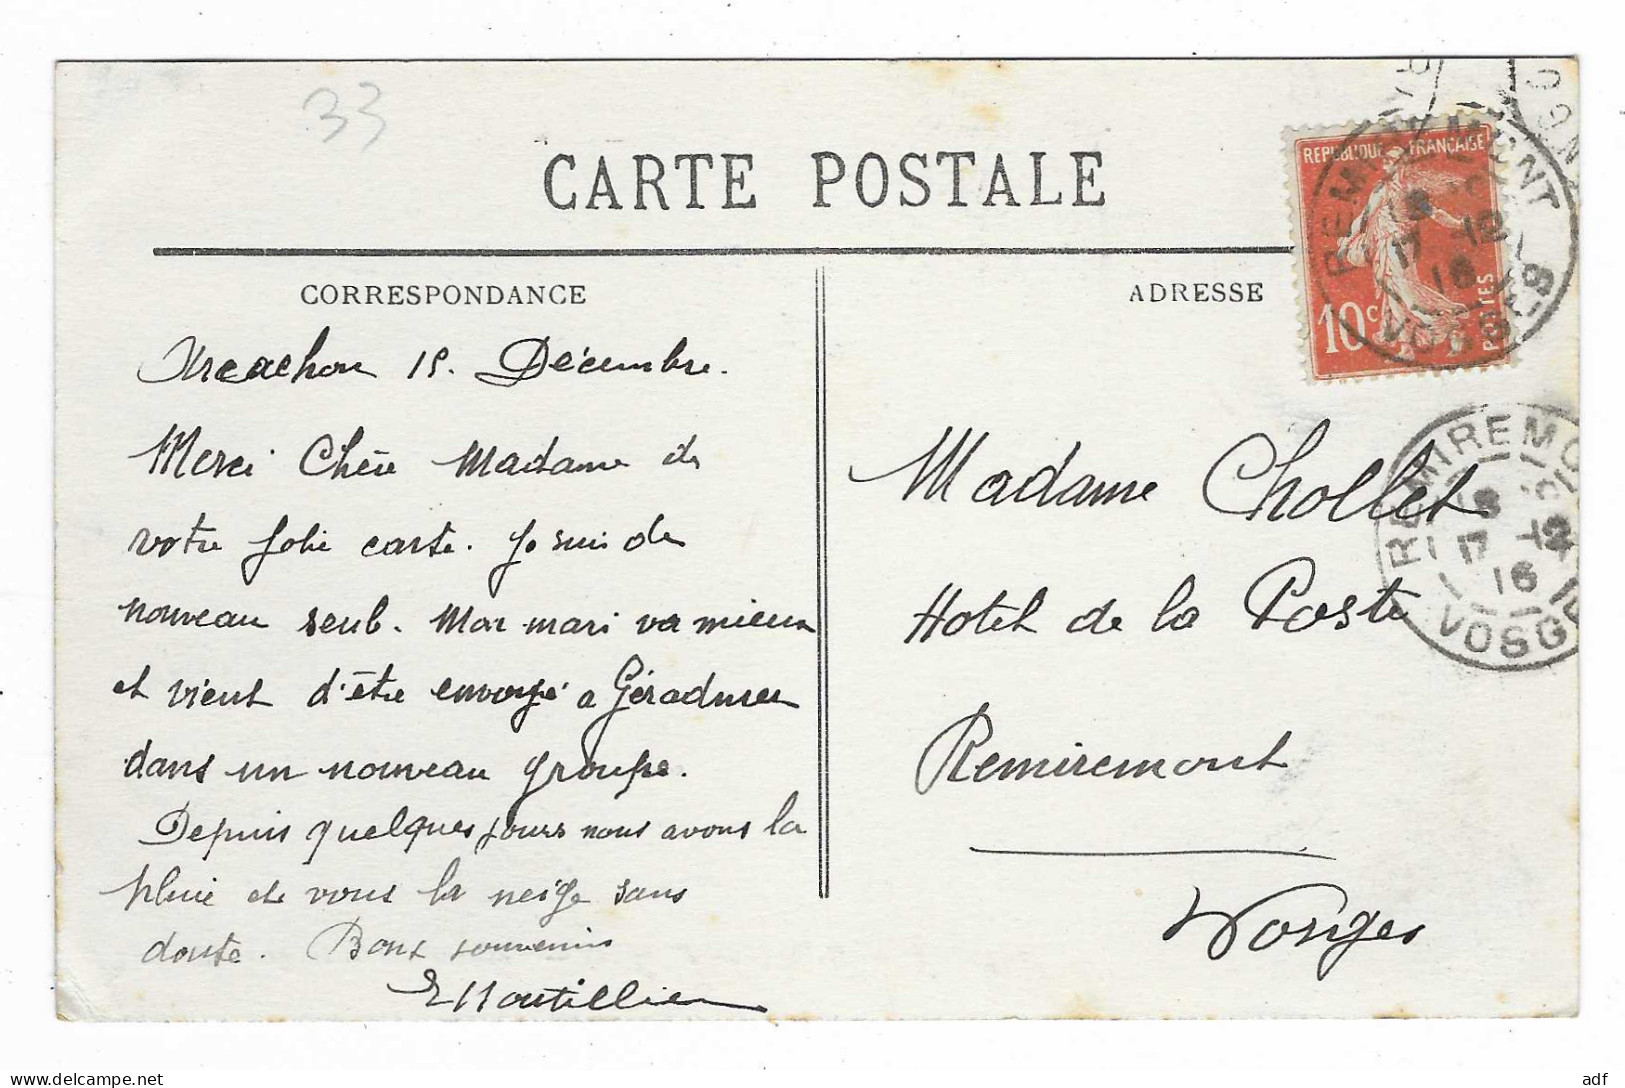 33
CARTE POSTALE
CORRESPONDANCE
ADRESSE
REPUBLIQUE FRANÇAISE
10c
POSTES
REMIREMONT
17 -12
16
VOSGES
Arcachon 15. Décembre.
Merci Chère Madame de
votre jolie carte. Je suis de
nouveau seul. Mon mari va mieux
et vient d'être envoyé à Gérardmer
dans un nouveau groupe.
Depuis quelques jours nous avons la
pluie et vous la neige sans
doute. Bons souvenirs
Madame Chollet
Hotel de la Poste
Remiremont
Vosges
REMIREMO
17 -12
16
VOSGE
www.delcampe.net
adf